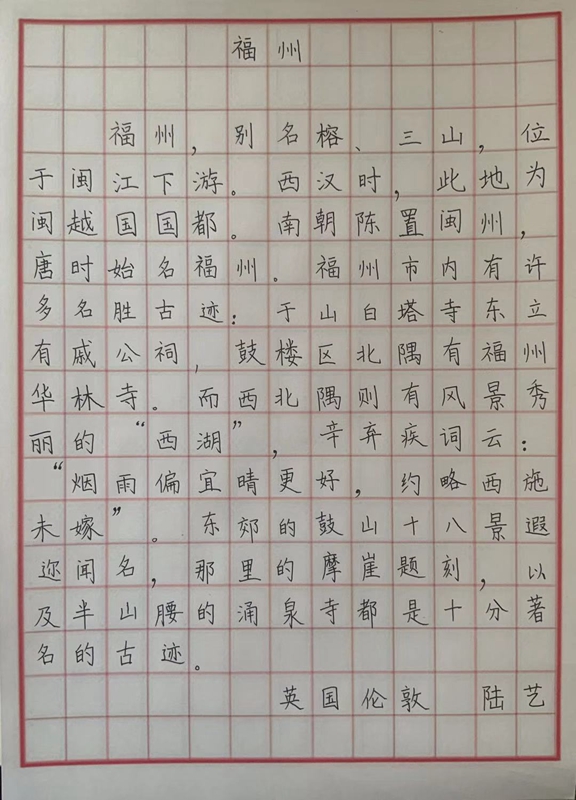 福州
福州，别名榕、三山，位
于闽江下游。西汉时，此地为
闽越国国都。南朝陈置闽州，
唐时始名福州。福州市内有许
多名胜古迹：于山白塔寺东立
有戚公祠，鼓楼区北隅有福州
华林寺。而西北隅则有风景秀
丽的“西湖”，辛弃疾词云：
“烟雨偏宜晴更好，约略西施
未嫁”。东郊的鼓山十八景遐
迩闻名，那里的摩崖题刻，以
及半山腰的涌泉寺都是十分著
名的古迹。
英国伦敦 陆艺